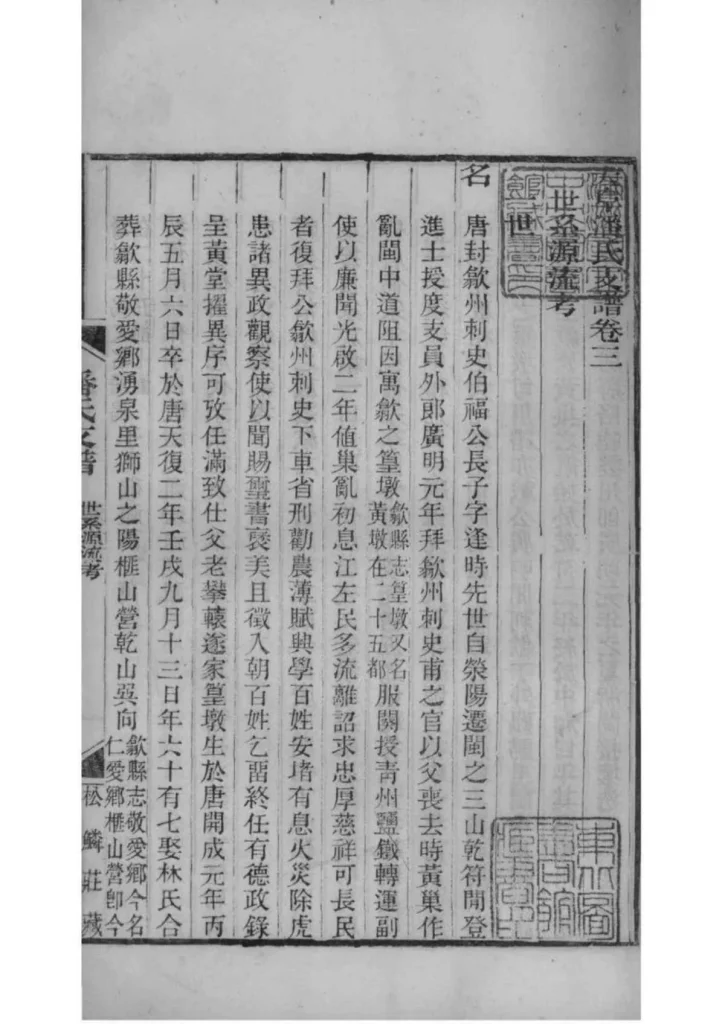 潘氏支譜卷三
世系源流考
一世
名
唐封歙州刺史伯福公長子字逢時先世自滎陽遷閩之三山乾符間登
進士授度支員外郎廣明元年拜歙州刺史甫之官以父喪去時黃巢作
亂閩中道阻因寓歙之篁墩歙縣志篁墩又名黃墩在二十五都服闋授青州鹽鐵轉運副
使以廉聞光啟二年值巢亂初息江左民多流離詔求忠厚慈祥可長民
者復拜公歙州刺史下車省刑勸農薄賦興學百姓安堵有息火災除虎
患諸異政觀察使以聞賜璽書襃美且徵入朝百姓乞畱終任有德政錄
呈黃堂擢異序可攷任滿致仕父老攀轅遂家篁墩生於唐開成元年丙
辰五月六日卒於唐天復二年壬戌九月十三日年六十有七娶林氏合
葬歙縣敬愛鄉湧泉里獅山之陽榧山營乾山巽向歙縣志敬愛鄉今名仁愛鄉榧山營卽今
潘氏支譜
世系源流考
松鱗莊藏